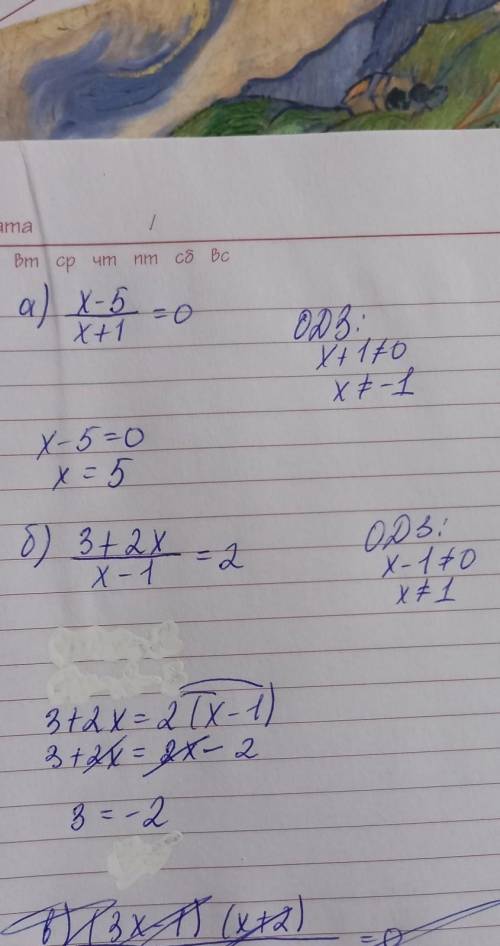 ата /
Вт ср чт пт сб Вс
а) (x-5)/(x+1) = 0
ОДЗ:
x+1≠0
x≠-1
x-5=0
x=5
б) (3+2x)/(x-1) = 2
ОДЗ:
x-1≠0
x≠1
3+2x=2(x-1)
3+2x=2x-2
3=-2
в) (3x-1)(x+2) = 0